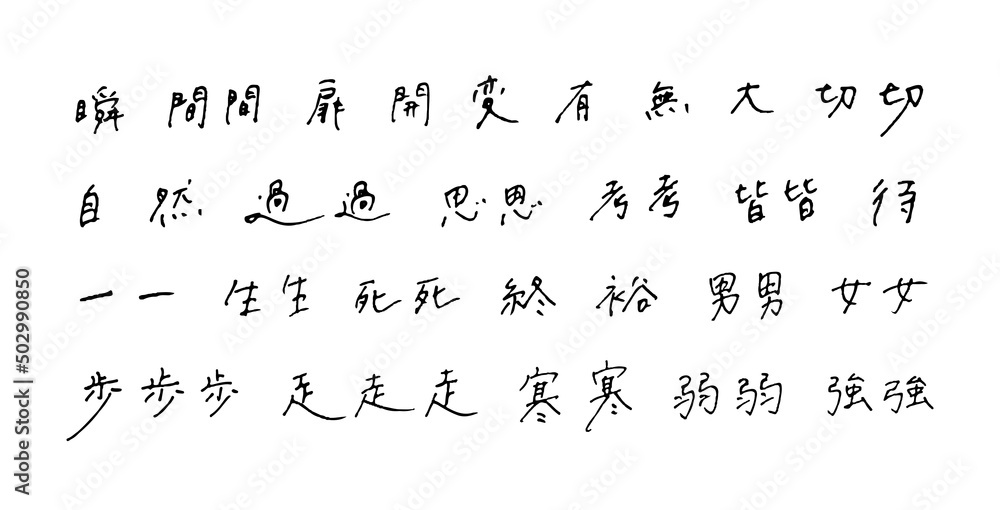 瞬 間間 扉 開 変 有 無 大 切切
自 然 過過 思思 考考 皆皆 待
一一 生生 死死 終 裕 男男 女女
歩歩歩 走走走 寒寒 弱弱 強強
Adobe Stock | #502990850